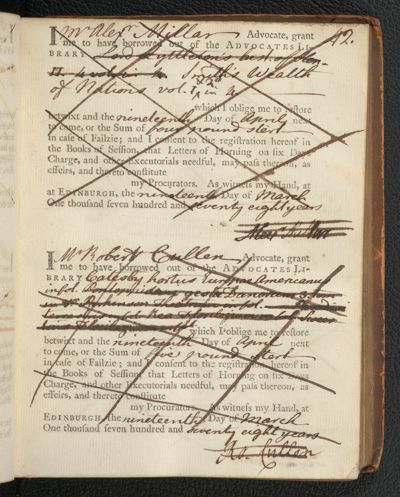 42.
I Mr Alexr Millar Advocate, grant
me to have borrowed out of the ADVOCATES LI-
BRARY Lord Lyttleton's hist. of Hen.
II. 4 vol. in 4. Smith's Wealth
of Nations vol. in 4
which I oblige me to restore
betwixt and the nineteenth Day of April next
to come, or the Sum of four pound sterl
in case of Failzie; and I consent to the registration hereof in
the Books of Session, that Letters of Horning on six Days
Charge, and other Executorials needful, may pass thereon, as
effeirs, and thereto constitute
my Procurators. As witness my Hand, at
at EDINBURGH, the nineteenth Day of March
One thousand seven hundred and seventy eight years
Alexr Millar
I Mr Robert Cullen Advocate, grant
me to have borrowed out of the ADVOCATES LI-
BRARY Catesby Hortus Europae Americanus
in fol.
which I oblige me to restore
betwixt and the nineteenth Day of April next
to come, or the Sum of five pound sterl
in case of Failzie; and I consent to the registration hereof in
the Books of Session, that Letters of Horning on six Days
Charge, and other Executorials needful, may pass thereon, as
effeirs, and thereto constitute
my Procurators. As witness my Hand, at
EDINBURGH, the nineteenth Day of March
One thousand seven hundred and seventy eight years
Ro. Cullen